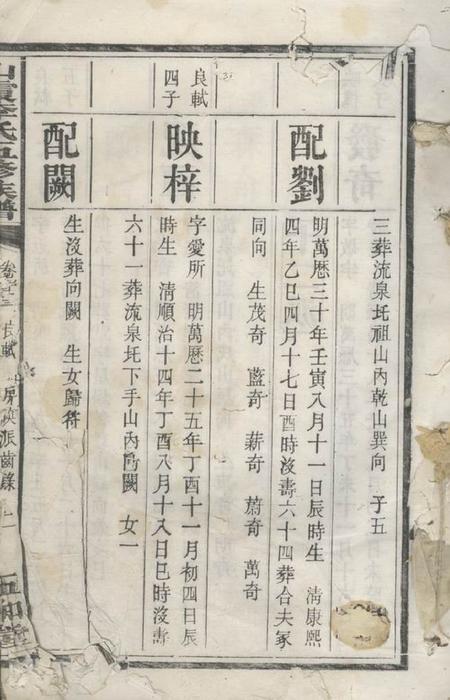 三葬流泉圫祖山內乾山巽向 子五
配劉
明萬曆三十年壬寅八月十一日辰時生 清康熙
四年乙巳四月十七日酉時沒壽六十四葬合夫冢
同向 生茂奇 藍奇 薪奇 蔚奇 萬奇
良軾
四子
映梓
字愛所 明萬曆二十五年丁酉十一月初四日辰
時生 清順治十四年丁酉八月十八日巳時沒壽
六十一葬流泉圫下手山內向闕 女一
配闕
生沒葬向闕 生女歸符
氏五修族譜
良軾 房映派齒錄
五和堂